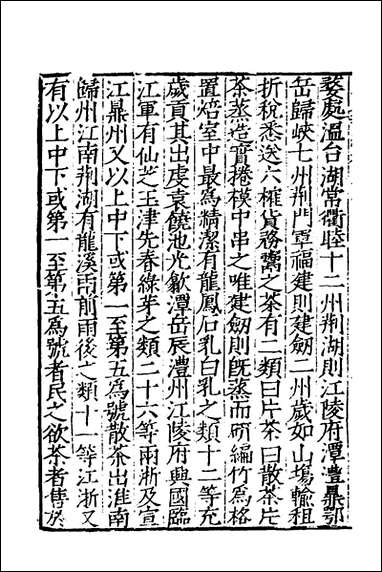 婺處溫台湖常衢睦十二州荆湖則江陵府潭澧鼎鄂
岳歸峽七州荆門軍福建則建劒二州歲如山塲輸租
折稅悉送六榷貨務鬻之茶有二類曰片茶曰散茶片
茶蒸造實捲模中串之唯建劒則旣蒸而硏編竹爲格
置焙室中最爲精潔有龍鳳石乳白乳之類十二等充
歲貢其出虔袁饒池光歙潭岳辰澧州江陵府興國臨
江軍有仙芝玉津先春綠芽之類二十六等兩浙及宣
江鼎州又以上中下或第一至第五爲號散茶出淮南
歸州江南荆湖有龍溪雨前雨後之類十一等江浙又
有以上中下或第一至第五爲號者民之欲茶者售於